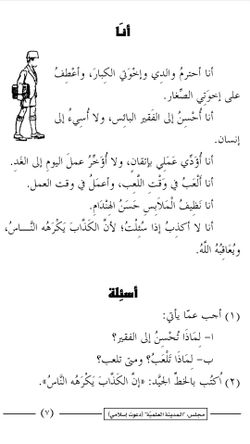 أنَا
أنا أحترمُ والدي وإخْوَتِي الكِبارَ، وأعْطِفُ
على إخوَتِي الصِّغار.
أنا أُحْسِنُ إلى الفَقير البائس، ولا أُسِيءُ إلى
إنسان.
أنا أُؤَدِّي عَمَلِي بإتقانٍ، ولا أُؤَخِّرُ عملَ اليومِ إلى الغَدِ.
أنا أَلْعَبُ في وَقْتِ اللَّعب، وأعمَلُ في وقت العمل.
أنا نَظِيفُ الْمَلابِسِ حَسَنُ الهِنْدَامِ.
أنا لا أكذِبُ إذا سُئِلْتُ؛ لأنَّ الكَذَّابَ يَكْرَهُه النَّـاسُ،
ويُعَاقِبُهُ اللَّهُ.
أسئِلة
(١) أجب عمّا يأتي:
ا- لِمَاذَا تُحْسِنُ إلى الفقير؟
ب- لِمَاذَا تَلْعَبُ؟ ومتى تلعب؟
(٢) اُكتُب بالخطّ الجيَّد: «إنَّ الكَذَّابَ يَكْرَهُه النَّاسُ».
مجلس: "المدينة العلمية" (دعوت إسلامي)
(٧)